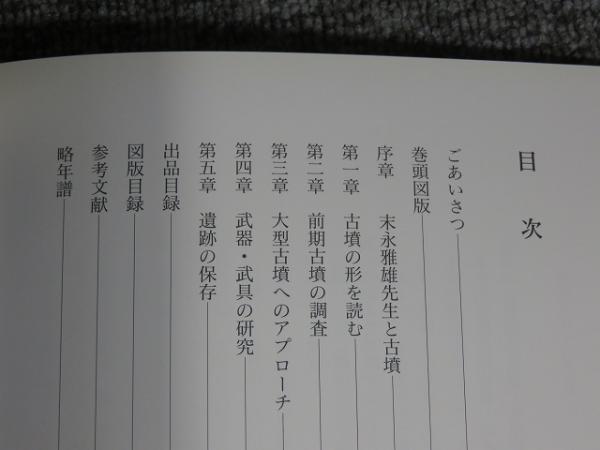 目次
ごあいさつ
巻頭図版
序章 末永雅雄先生と古墳
第一章 古墳の形を読む
第二章 前期古墳の調査
第三章 大型古墳へのアプローチ
第四章 武器・武具の研究
第五章 遺跡の保存
出品目録
図版目録
参考文献
略年譜